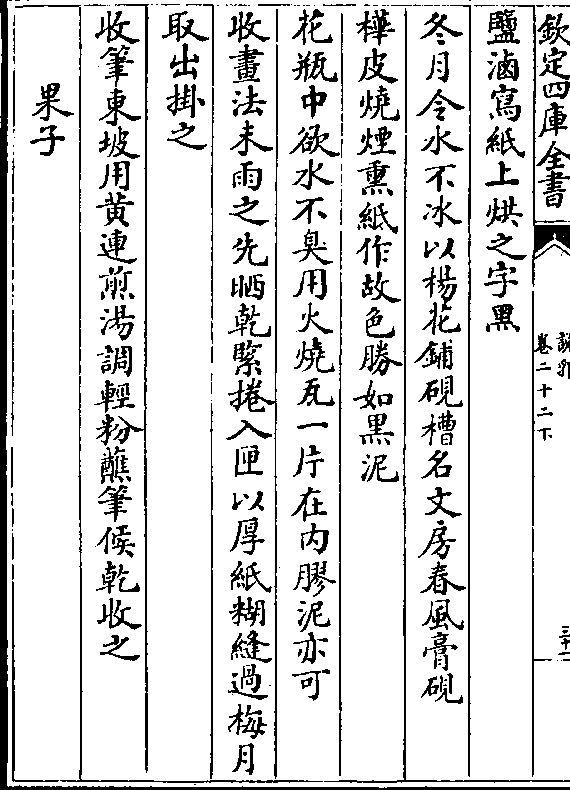 欽定四庫全書
說郛
卷二十二下
三十一
鹽滷寫紙上烘之字黑
冬月令水不冰以楊花鋪硯槽名文房春風膏硯
樺皮燒煙熏紙作故色勝如黑泥
花瓶中欲水不臭用火燒瓦一片在內膠泥亦可
收畫法未雨之先晒乾緊捲入匣以厚紙糊縫過梅月
取出掛之
收筆東坡用黄連煎湯調輕粉蘸筆候乾收之
果子